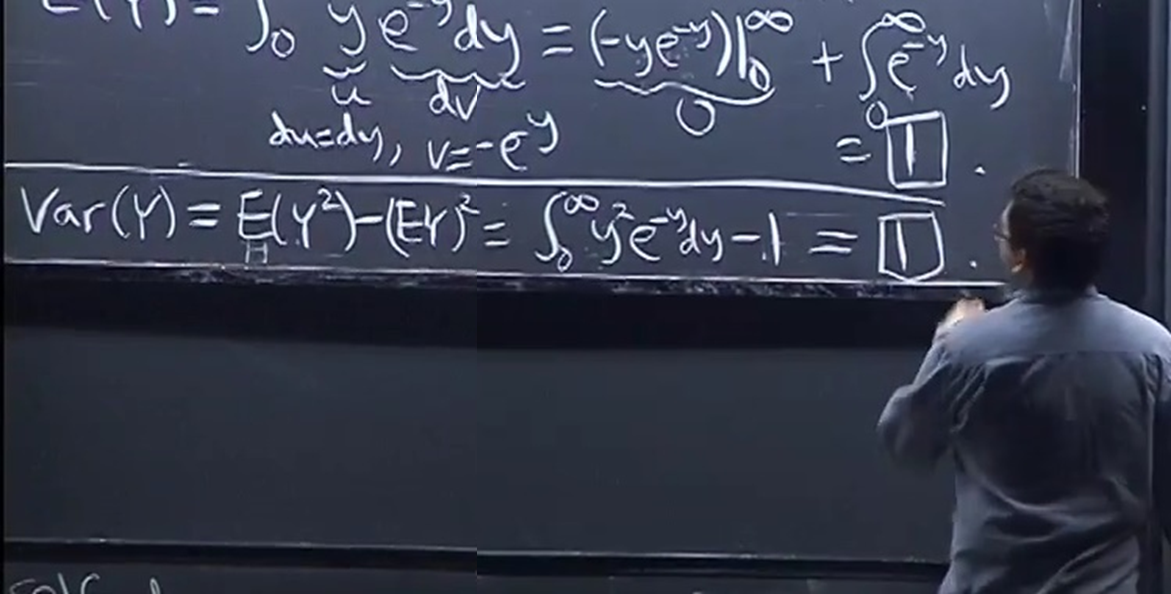 E(Y) = ∫₀ y e^{-y} dy = (-ye^{-y})|₀^∞ + ∫₀^∞ e^{-y} dy
u dv 0
du=dy, v=-e^{-y} = 1.
Var(Y) = E(Y²)-(EY)² = ∫₀^∞ y²e^{-y}dy-1 = 1.